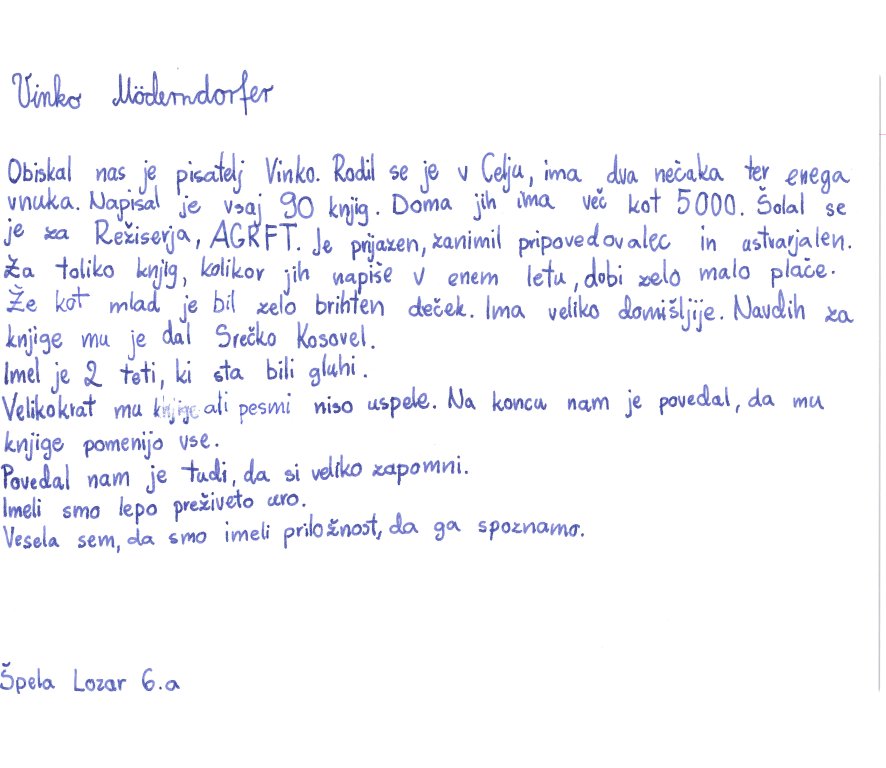 Vinko Möderndorfer
Obiskal nas je pisatelj Vinko. Rodil se je v Celju, ima dva nečaka ter enega
vnuka. Napisal je vsaj 90 knjig. Doma jih ima več kot 5000. Šolal se
je za Režiserja, AGRFT. Je prijazen, zanimil pripovedovalec in ustvarjalen.
Za toliko knjig, kolikor jih napiše v enem letu, dobi zelo malo plače.
Že kot mlad je bil zelo brihten deček. Ima veliko domišljije. Navdih za
knjige mu je dal Srečko Kosovel.
Imel je 2 teti, ki sta bili gluhi.
Velikokrat mu knjige ali pesmi niso uspele. Na koncu nam je povedal, da mu
knjige pomenijo vse.
Povedal nam je tudi, da si veliko zapomni.
Imeli smo lepo preživeto uro.
Vesela sem, da smo imeli priložnost, da ga spoznamo.
Špela Lozar 6.a